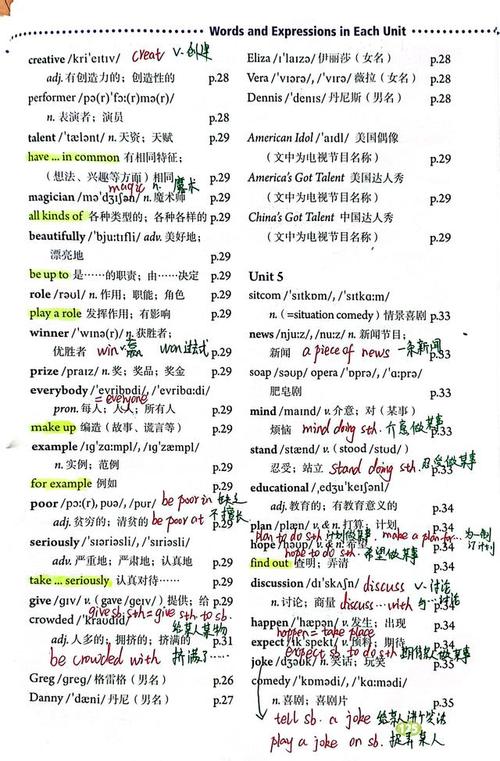 Words and Expressions in Each Unit
creative /kri'eɪtɪv/ creat v.创建
adj. 有创造力的；创造性的 p.28
performer /pə(r)'fɔ:(r)mə(r)/
n. 表演者；演员 p.28
talent /'tælənt/ n. 天资；天赋 p.29
have ... in common 有相同特征；
（想法、兴趣等方面）相同 p.29
magic n. 魔术
magician /mə'dʒɪʃən/ n. 魔术师 p.29
all kinds of 各种类型的；各种各样的 p.29
beautifully /'bju:tɪfli/ adv. 美好地；
漂亮地 p.29
be up to 是……的职责；由……决定 p.29
role /rəʊl/ n. 作用；职能；角色 p.29
play a role 发挥作用；有影响 p.29
winner /'wɪnə(r)/ n. 获胜者；
优胜者 win v.赢 won过去式 p.29
prize /praɪz/ n. 奖；奖品；奖金 p.29
everybody /'evribɒdi/, /'evribɑ:di/
= everyone
pron. 每人；人人；所有人 p.29
make up 编造（故事、谎言等） p.29
example /ɪg'zɑ:mpl/, /ɪg'zæmpl/
n. 实例；范例 p.29
for example 例如 p.29
poor /pɔ:(r), pʊə/, /pʊr/ be poor in 缺乏
adj. 贫穷的；清贫的 be poor at 不擅长 p.29
seriously /'sɪəriəsli/, /'sɪriəsli/
adv. 严重地；严肃地；认真地 p.29
take ... seriously 认真对待…… p.29
give /gɪv/ v. (gave /geɪv/) 提供；给 p.29
give sb. sth = give sth to sb.
crowded /'kraʊdɪd/ 给某人某物
adj. 人多的；拥挤的；挤满的 p.31
be crowded with 挤满了……
Greg /greg/ 格雷格（男名） p.26
Danny /'dæni/ 丹尼（男名） p.27
Eliza /ɪ'laɪzə/ 伊丽莎（女名） p.28
Vera /'vɪərə/, /'vɪrə/ 薇拉（女名） p.28
Dennis /'denɪs/ 丹尼斯（男名） p.28
American Idol /'aɪdl/ 美国偶像
（文中为电视节目名称） p.29
America's Got Talent 美国达人秀
（文中为电视节目名称） p.29
China's Got Talent 中国达人秀
（文中为电视节目名称） p.29
Unit 5
sitcom /'sɪtkɒm/, /'sɪtkɑ:m/
n. (=situation comedy) 情景喜剧 p.33
news /nju:z/, /nu:z/ n. 新闻节目；
新闻 a piece of news 一条新闻 p.33
soap /səʊp/ opera /'ɒprə/, /'ɑ:prə/
肥皂剧 p.33
mind /maɪnd/ v. 介意；对（某事）
烦恼 mind doing sth. 介意做某事 p.33
stand /stænd/ v. (stood /stʊd/)
忍受；站立 stand doing sth. 忍受做某事 p.33
educational /ˌedʒu'keɪʃənl/
adj. 教育的；有教育意义的 p.34
plan /plæn/ v. & n. 打算；计划 p.34
plan to do sth 计划做某事 make a plan for... 为…制订计划
hope /həʊp/ v. & n. 希望 p.34
hope to do sth. 希望做某事
find out 查明；弄清 p.34
discussion /dɪ'skʌʃn/ discuss v.讨论
n. 讨论；商量 discuss...with 与…讨论 p.34
happen /'hæpən/ v. 发生；出现 p.34
happen = take place
expect /ɪk'spekt/ v. 预料；期待 p.34
expect sb. to do sth 期待某人做某事
joke /dʒəʊk/ n. 笑话；玩笑 p.34
comedy /'kɒmədi/, /'kɑ:mədi/
n. 喜剧；喜剧片 p.35
tell sb. a joke 给某人讲个笑话
play a joke on sb. 捉弄某人
125